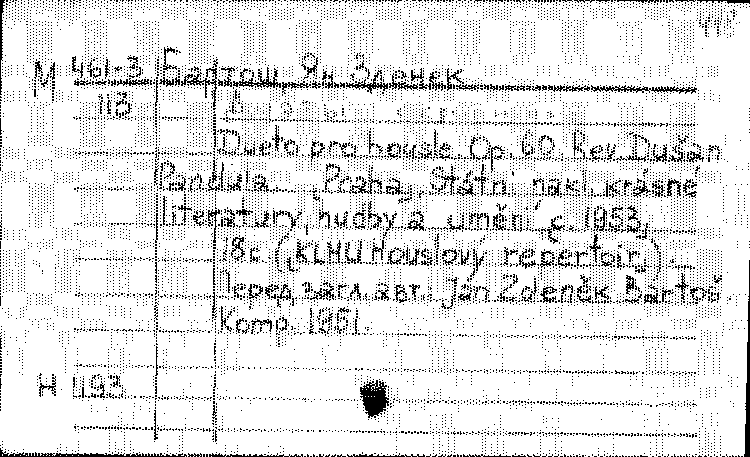 М 461-3 Бартош, Ян Зденек
113
Dueto pro housle Op. 60. Rev. Dušan
Pandula. [Praha], Státní nakl. krásné
literatury, hudby a umění, [c. 1953],
18 c. ([KLHU Houslový repertoir]).
Перед загл. авт.: Jan Zdeněk Bartoš.
Komp. 1951.
Н 493